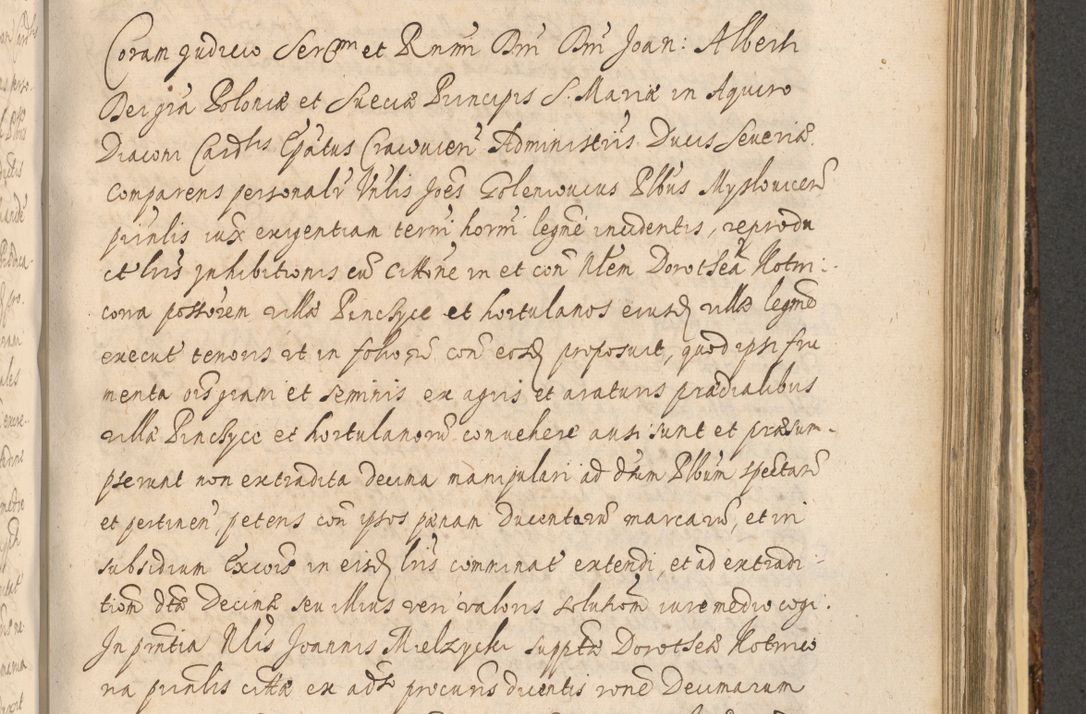 Coram judicio Sermi et Rnm̃i Dnĩ Dnĩ Joan: Alberti
Dei gr̃a Poloniæ et Sueciæ Principis S. Mariæ in Aquiro
Diaconi Cardlis Ep̃atus Cracovien̄ Administr̃is Ducis Severiæ.
comparens personalr̃ Vnlis Joẽs Goleniovius Plbũs Myslovicen̄
prin̄lis iux̃ exigentiam termĩ horm̃ legñe incidentis, reprodu
cit lrĩs inhibitionis cũ citt̃one in et con̄ Nl̃em Dorotheã Kotwi:
conã posso͂rem villæ Pinczyce et hortulanos eiusd̃ villæ legm̃e
execut̃ tenoris ut in folio, con̄ eosd̃ proposuit, quod ipsi fru
menta oĩs grani et seminis ex agris et araturis prædialibus
villæ Pinczyce et hortulanorũ convehere ausi sunt et præsum-
pserunt non extradita decima manipulari ad dt̃um Plbũm spectan̄
et pertinen̄ petens con̄ ipsos pænam ducentarũ marcarũ, et in
subsidium Excoĩs in eisd̃ lrĩs comminat̃ extendi, et ad extradi-
tionẽ dt̃æ Decimæ seu illius veri valoris solutionẽ iure medio cogi.
In pñtia Nlis Joannis Mielzycki suppt̃æ Dorotheæ Kotwico
na prin̄lis citt̃æ ex adso procuris dicentis rone Decimarum